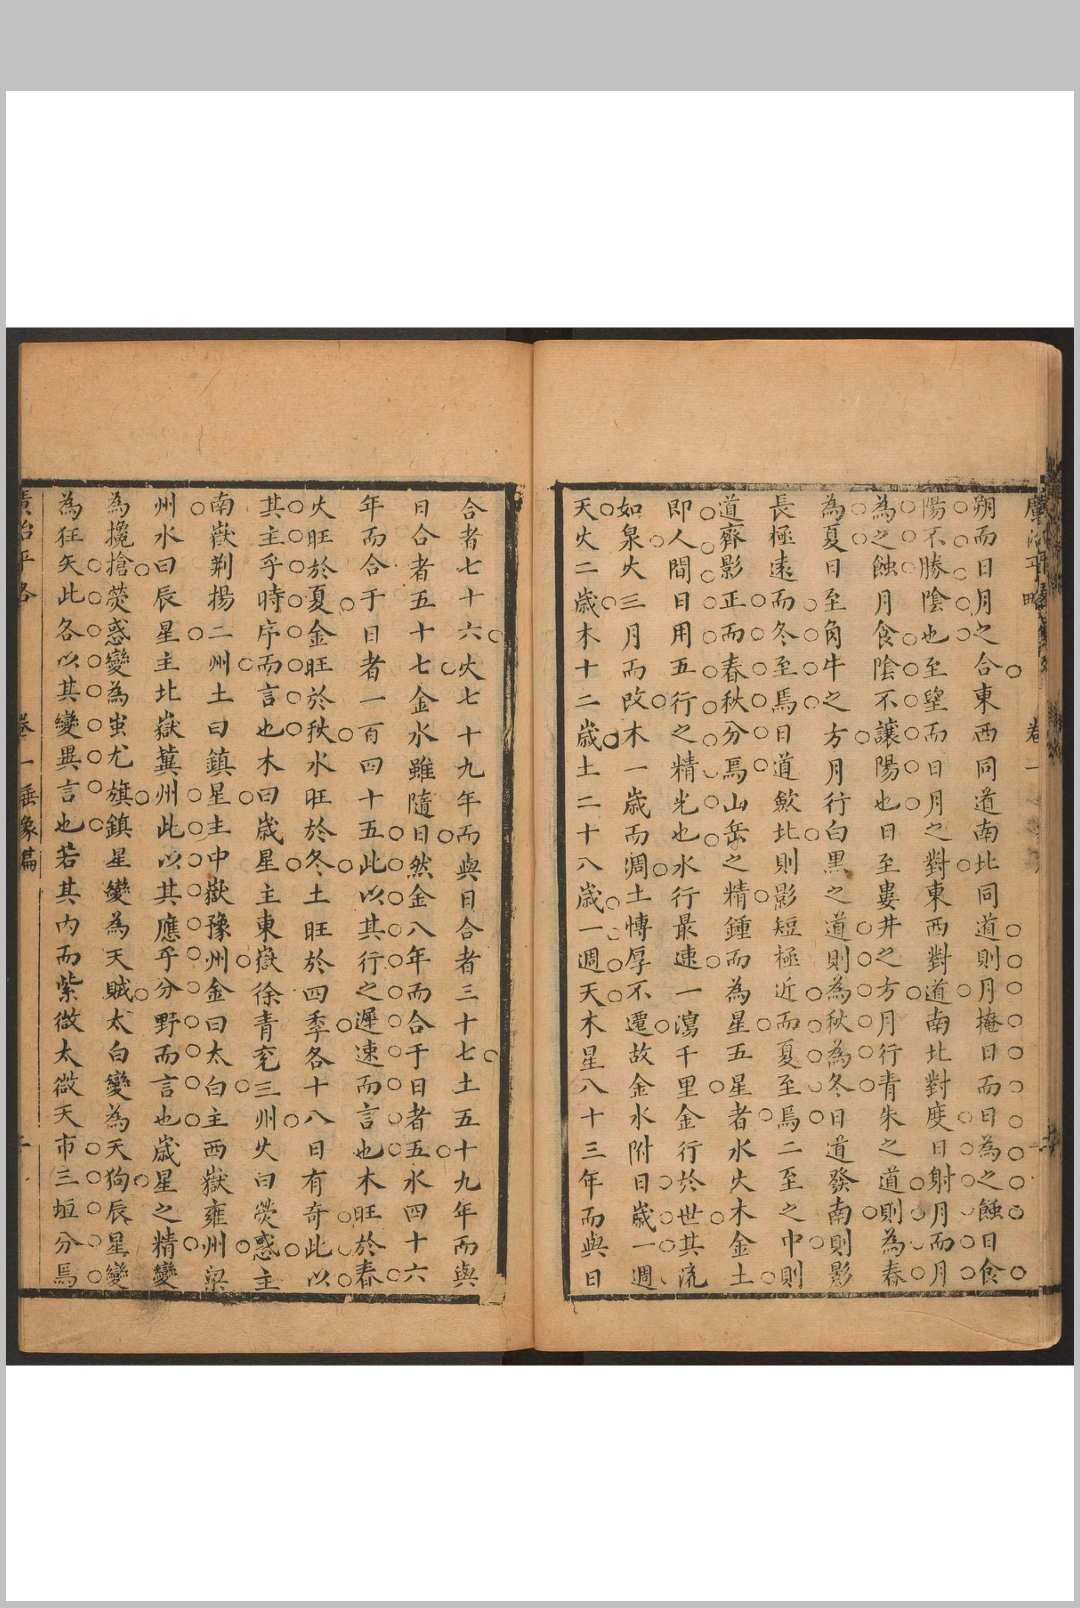 廣治平略 卷一
朔而日月之合東西同道南北同道則月掩日而日為之蝕日食
陽不勝陰也至望而日月之對東西對道南北對度日射月而月
為之蝕月食陰不讓陽也日至婁井之方月行青朱之道則為春
為夏日至角牛之方月行白黑之道則為秋為冬日道發南則影
長極遠而冬至焉日道歛北則影短極近而夏至焉二至之中則
道齊影正而春秋分焉山岳之精鍾而為星五星者水火木金土
即人間日用五行之精光也水行最速一瀉千里金行於世其流
如泉火三月而改木一歲而凋土博厚不遷故金水附日歲一週
天火二歲木十二歲土二十八歲一週天木星八十三年而與日
合者七十六火七十九年而與日合者三十七土五十九年而與
日合者五十七金水雖隨日然金八年而合于日者五水四十六
年而合于日者一百四十五此以其行之遲速而言也木旺於春
火旺於夏金旺於秋水旺於冬土旺於四季各十八日有奇此以
其主乎時序而言也木曰歲星主東嶽徐青兗三州火曰熒惑主
南嶽荆揚二州土曰鎮星主中嶽豫州金曰太白主西嶽雍州梁
州水曰辰星主北嶽冀州此以其應乎分野而言也歲星之精變
為攙搶熒惑變為蚩尤旗鎮星變為天賊太白變為天狗辰星變
為狂矢此各以其變異言也若其内而紫微太微天市三垣分焉
廣治平略 卷一垂象篇 二